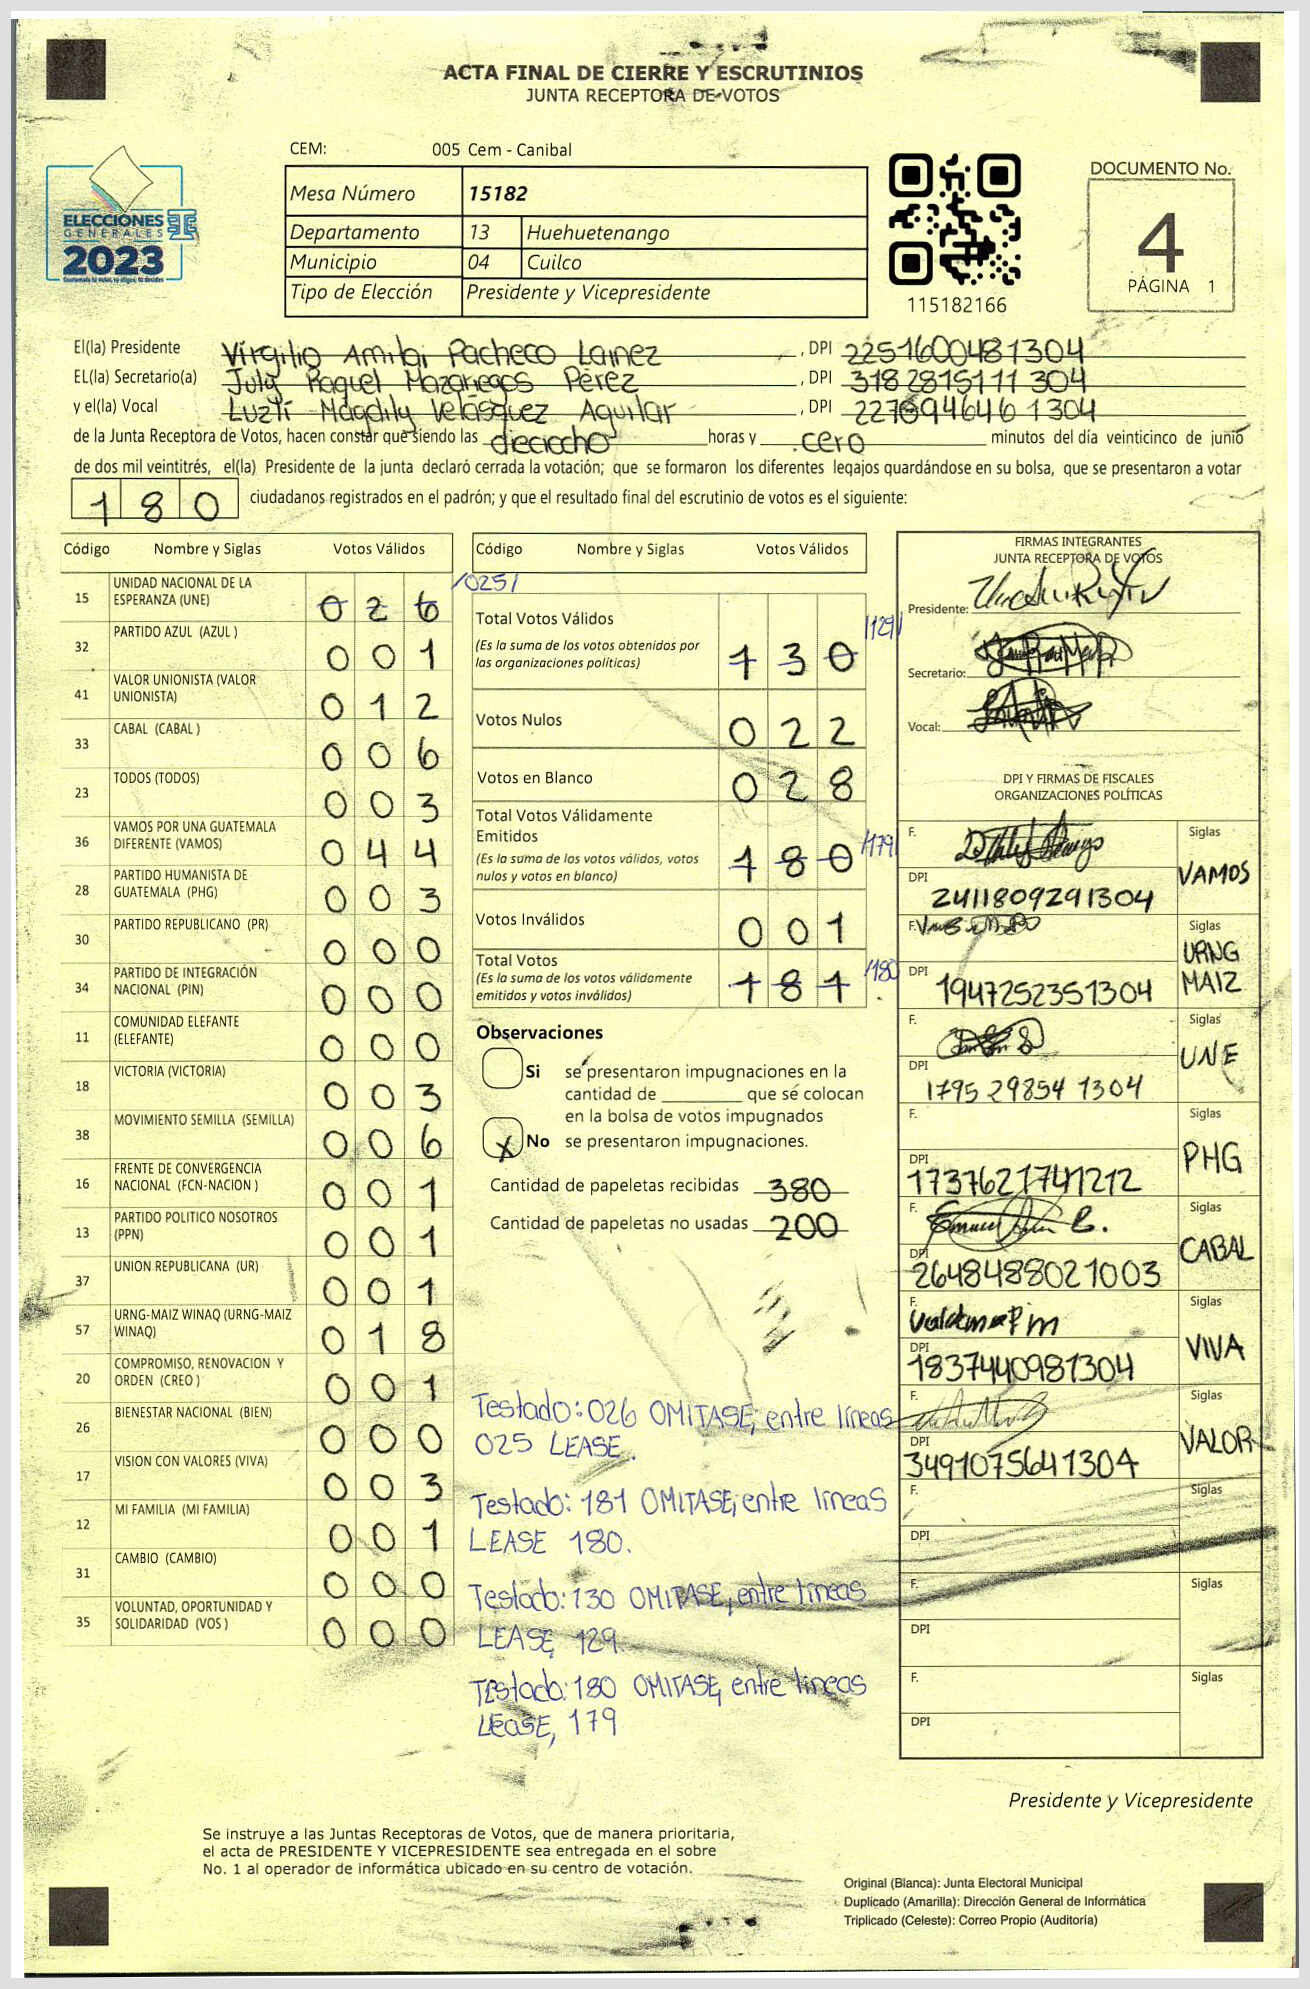 ACTA FINAL DE CIERRE Y ESCRUTINIOS
JUNTA RECEPTORA DE VOTOS
CEM: 005 Cem - Canibal
ELECCIONES
GENERALES
2023
Mesa Número 15182
Departamento 13 Huehuetenango
Municipio 04 Cuilco
Tipo de Elección Presidente y Vicepresidente
115182166
DOCUMENTO No.
4
PÁGINA 1
El(la) Presidente Virgilio Amilai Pacheco Lainez, DPI 2251600481304
EL(la) Secretario(a) July Raquel Mazariegos Pérez, DPI 3182815111304
y el(la) Vocal Luzti Magdily Velásquez Aguilar, DPI 2278946461304
de la Junta Receptora de Votos, hacen constar que siendo las dieciocho horas y cero minutos del día veinticinco de junio
de dos mil veintitrés, el(la) Presidente de la junta declaró cerrada la votación; que se formaron los diferentes legajos guardándose en su bolsa, que se presentaron a votar
180 ciudadanos registrados en el padrón; y que el resultado final del escrutinio de votos es el siguiente:
Código Nombre y Siglas Votos Válidos
15 UNIDAD NACIONAL DE LA ESPERANZA (UNE) 026 /025/
32 PARTIDO AZUL (AZUL ) 001
41 VALOR UNIONISTA (VALOR UNIONISTA) 012
33 CABAL (CABAL ) 006
23 TODOS (TODOS) 003
36 VAMOS POR UNA GUATEMALA DIFERENTE (VAMOS) 044
28 PARTIDO HUMANISTA DE GUATEMALA (PHG) 003
30 PARTIDO REPUBLICANO (PR) 000
34 PARTIDO DE INTEGRACIÓN NACIONAL (PIN) 000
11 COMUNIDAD ELEFANTE (ELEFANTE) 000
18 VICTORIA (VICTORIA) 003
38 MOVIMIENTO SEMILLA (SEMILLA) 006
16 FRENTE DE CONVERGENCIA NACIONAL (FCN-NACION ) 001
13 PARTIDO POLITICO NOSOTROS (PPN) 001
37 UNION REPUBLICANA (UR) 001
57 URNG-MAIZ WINAQ (URNG-MAIZ WINAQ) 018
20 COMPROMISO, RENOVACION Y ORDEN (CREO ) 001
26 BIENESTAR NACIONAL (BIEN) 000
17 VISION CON VALORES (VIVA) 003
12 MI FAMILIA (MI FAMILIA) 001
31 CAMBIO (CAMBIO) 000
35 VOLUNTAD, OPORTUNIDAD Y SOLIDARIDAD (VOS ) 000
Código Nombre y Siglas Votos Válidos
Total Votos Válidos 130 /129/
(Es la suma de los votos obtenidos por
las organizaciones políticas)
Votos Nulos 022
Votos en Blanco 028
Total Votos Válidamente
Emitidos 180 /179/
(Es la suma de los votos válidos, votos
nulos y votos en blanco)
Votos Inválidos 001
Total Votos 181 /180
(Es la suma de los votos válidamente
emitidos y votos inválidos)
Observaciones
Si se presentaron impugnaciones en la
cantidad de ________ que se colocan
en la bolsa de votos impugnados
X No se presentaron impugnaciones.
Cantidad de papeletas recibidas 380
Cantidad de papeletas no usadas 200
Testado: 026 OMITASE, entre líneas
025 LEASE.
Testado: 181 OMITASE, entre líneas
LEASE 180.
Testado: 130 OMITASE, entre líneas
LEASE, 129.
Testado: 180 OMITASE, entre líneas
LEASE, 179
FIRMAS INTEGRANTES
JUNTA RECEPTORA DE VOTOS
Presidente:
Secretario:
Vocal:
DPI Y FIRMAS DE FISCALES
ORGANIZACIONES POLÍTICAS
F. Siglas
VAMOS
DPI 2411809291304
F. Siglas
URNG
MAIZ
DPI 1947252351304
F. Siglas
UNE
DPI 1795298541304
F. Siglas
PHG
DPI 1737621741212
F. Siglas
CABAL
DPI 2648488021003
F. Siglas
VIVA
DPI 1837440981304
F. Siglas
VALOR
DPI 3491075641304
F. Siglas
DPI
F. Siglas
DPI
F. Siglas
DPI
Presidente y Vicepresidente
Se instruye a las Juntas Receptoras de Votos, que de manera prioritaria,
el acta de PRESIDENTE Y VICEPRESIDENTE sea entregada en el sobre
No. 1 al operador de informática ubicado en su centro de votación.
Original (Blanca): Junta Electoral Municipal
Duplicado (Amarilla): Dirección General de Informática
Triplicado (Celeste): Correo Propio (Auditoría)